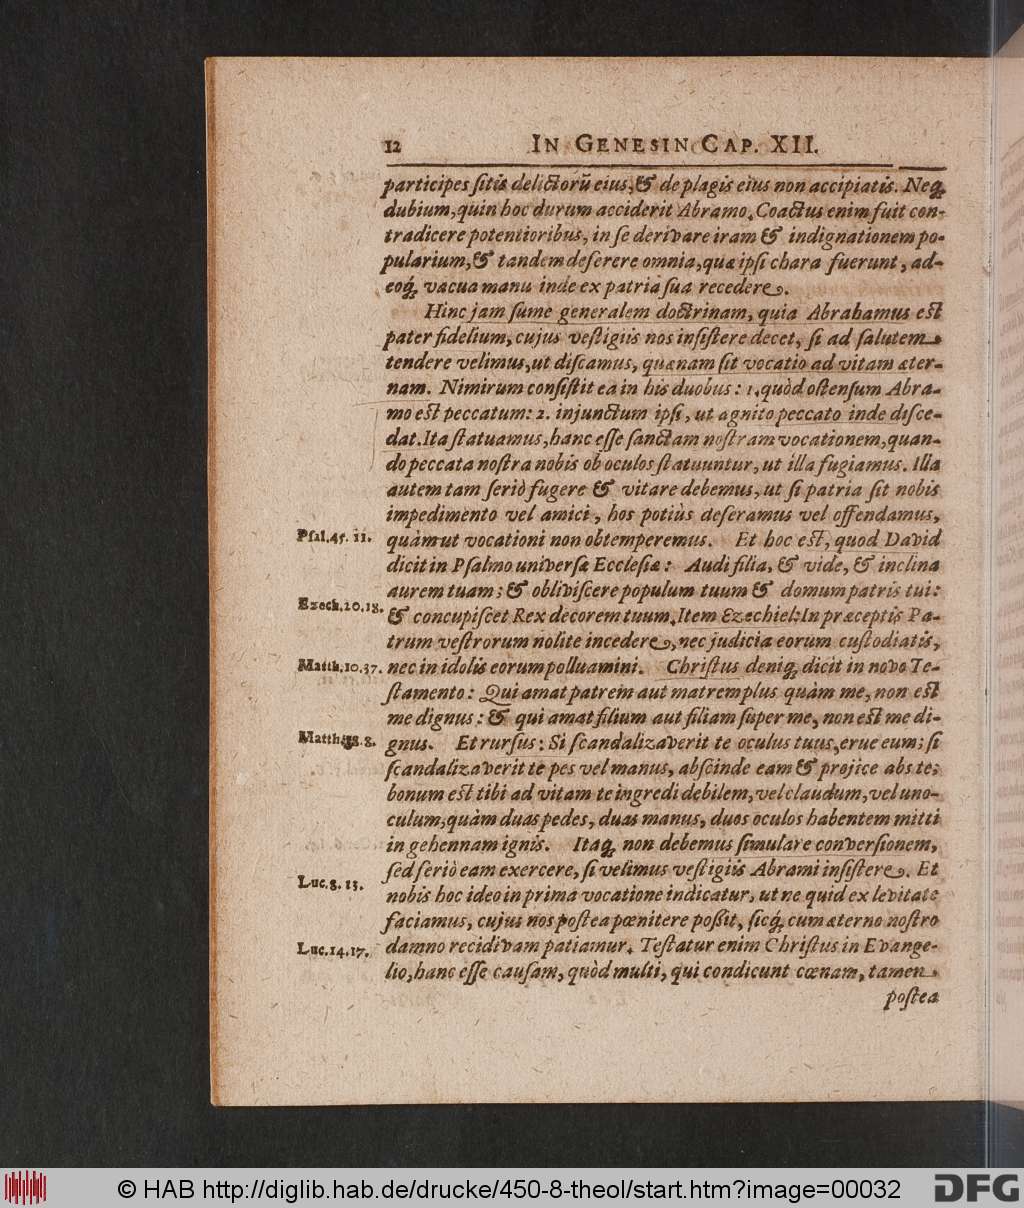 12 IN GENESIN CAP. XII.
participes ſitis delictorũ eius, & de plagis eius non accipiatis. Neq́;
dubium, quin hoc durum acciderit Abramo. Coactus enim fuit con-
tradicere potentioribus, in ſe derivare iram & indignationem po-
pularium, & tandem deſerere omnia, quæ ipſi chara fuerunt, ad-
eoq́; vacua manu inde ex patria ſua recedere.
Hinc jam ſume generalem doctrinam, quia Abrahamus eſt
pater fidelium, cujus veſtigiis nos inſiſtere decet, ſi ad ſalutem
tendere velimus, ut diſcamus, quænam ſit vocatio ad vitam æter-
nam. Nimirum conſiſtit ea in his duobus: 1. quòd oſtenſum Abra-
mo eſt peccatum: 2. injunctum ipſi, ut agnito peccato inde diſce-
dat. Ita ſtatuamus, hanc eſſe ſanctam noſtram vocationem, quan-
do peccata noſtra nobis ob oculos ſtatuuntur, ut illa fugiamus. Illa
autem tam ſeriò fugere & vitare debemus, ut ſi patria ſit nobis
impedimento vel amici, hos potiùs deſeramus vel offendamus,
Pſal. 45. 11. quàm ut vocationi non obtemperemus. Et hoc eſt, quod David
dicit in Pſalmo univerſæ Eccleſiæ: Audi filia, & vide, & inclina
aurem tuam; & obliviſcere populum tuum & domum patris tui:
Ezech. 20. 18. & concupiſcet Rex decorem tuum. Item Ezechiel: In præceptis Pa-
trum veſtrorum nolite incedere, nec judicia eorum cuſtodiatis,
Matth. 10. 37. nec in idolis eorum polluamini. Chriſtus deniq́; dicit in novo Te-
ſtamento: Qui amat patrem aut matrem plus quàm me, non eſt
me dignus: & qui amat filium aut filiam ſuper me, non eſt me di-
Matth. 18. 8. gnus. Et rurſus: Si ſcandalizaverit te oculus tuus, erue eum; ſi
ſcandalizaverit te pes vel manus, abſcinde eam & projice abs te:
bonum eſt tibi ad vitam te ingredi debilem, vel claudum, vel uno-
culum, quàm duas pedes, duas manus, duos oculos habentem mitti
in gehennam ignis. Itaq́; non debemus ſimulare converſionem,
ſed ſeriò eam exercere, ſi velimus veſtigiis Abrami inſiſtere. Et
Luc. 8. 13. nobis hoc ideo in prima vocatione indicatur, ut ne quid ex levitate
faciamus, cujus nos poſtea pœnitere poßit, ſicq́; cum æterno noſtro
Luc. 14. 17. damno recidivam patiamur. Teſtatur enim Chriſtus in Evange-
lio, hanc eſſe cauſam, quòd multi, qui condicunt cœnam, tamen
poſtea
© HAB http://diglib.hab.de/drucke/450-8-theol/start.htm?image=00032 DFG